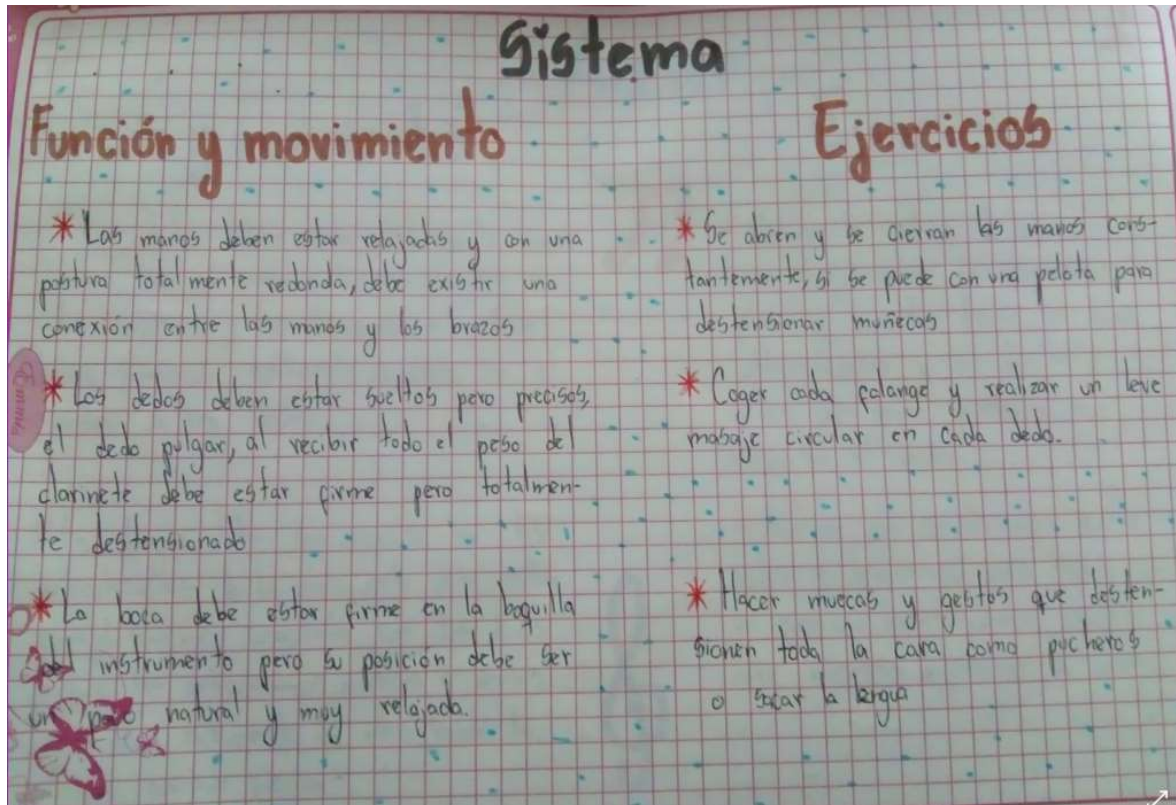 Sistema
Función y movimiento
* Las manos deben estar relajadas y con una
postura totalmente redonda, debe existir una
conexión entre las manos y los brazos
* Los dedos deben estar sueltos pero precisos,
el dedo pulgar, al recibir todo el peso del
clarinete debe estar firme pero totalmen-
te destensionado
* La boca debe estar firme en la boquilla
del instrumento pero su posición debe ser
un poco natural y muy relajada.
Ejercicios
* Se abren y se cierran las manos cons-
tantemente, si se puede con una pelota para
destensionar muñecas
* Coger cada falange y realizar un leve
masaje circular en cada dedo.
* Hacer muecas y gestos que desten-
sionen toda la cara como pucheros
o sacar la lengua